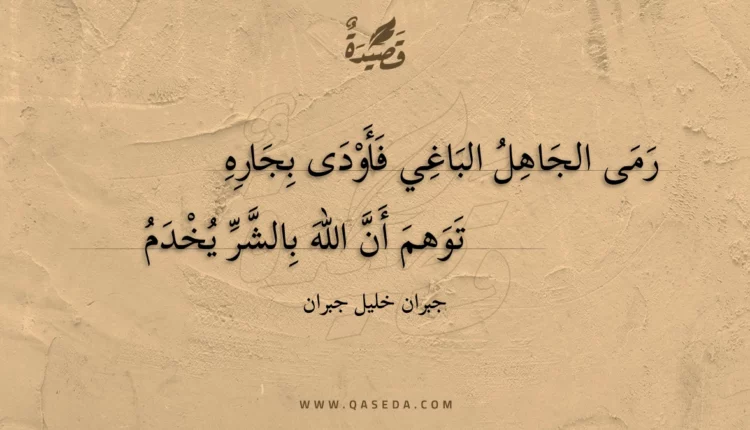 قَصِيْدَةٌ
رَمَى الجَاهِلُ البَاغِي فَأَوْدَى بِجَارِهِ
تَوَهمَ أَنَّ اللهَ بِالشَّرِّ يُخْدَمُ
جبران خليل جبران
WWW.QASEDA.COM